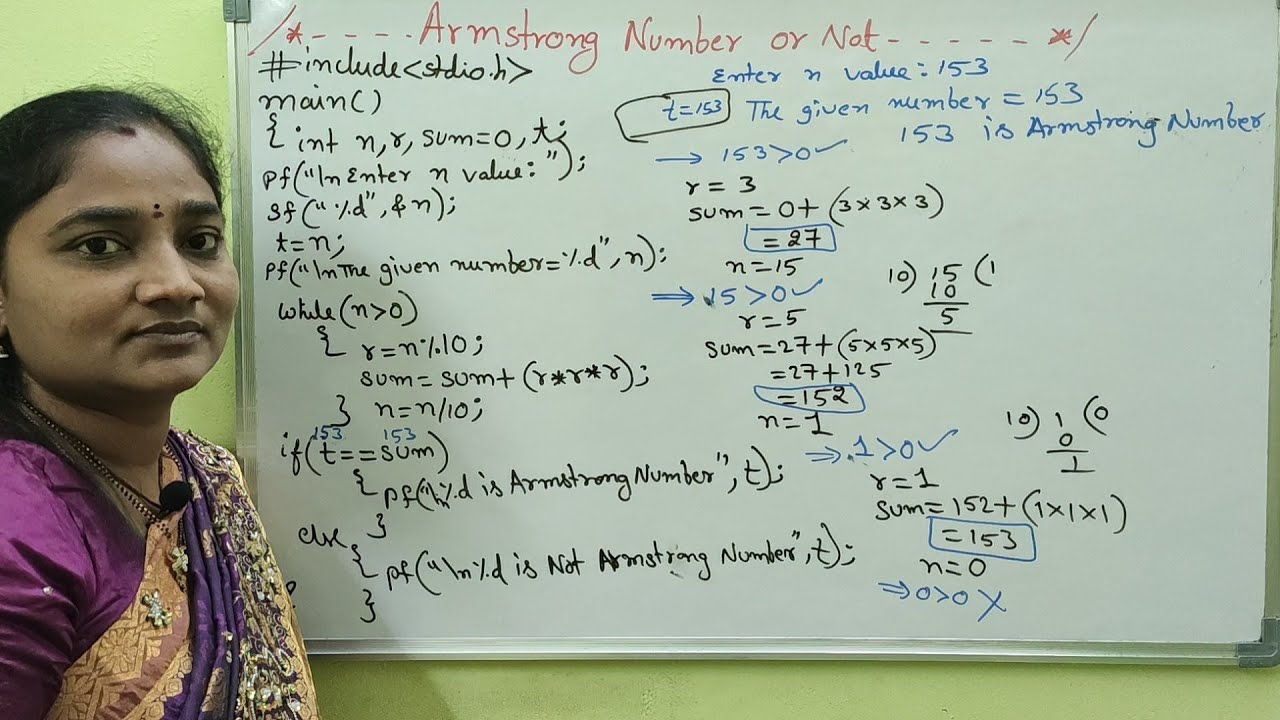 /*- - - - . Armstrong Number or Not - - - - - - */
#include<stdio.h>
main()
{ int n,r,sum=0,t;
pf("\nEnter n value:");
sf("%d",&n);
t=n;
pf("\nThe given number=%d",n);
while(n>0)
{ r=n%10;
sum=sum+(r*r*r);
} n=n/10;
153 153
if(t==sum)
{ pf("\n%d is Armstrong Number",t);
}
else
{ pf("\n%d is Not Armstrong Number",t);
}
Enter n value:153
t=153 The given number=153
153 is Armstrong Number
→ 153>0✓
r=3
sum=0+(3×3×3)
=27
n=15
⇒ 15>0✓
r=5
sum=27+(5×5×5)
=27+125
=152
n=1
⇒ 1>0✓
r=1
sum=152+(1×1×1)
=153
n=0
⇒0>0 X
10) 15 (1
10
5
10) 1 (0
0
1